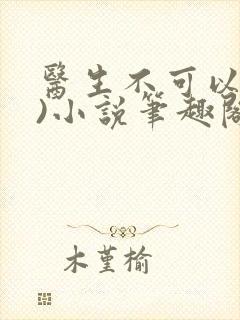 醫生不可以
)小說筆趣閣
木堇榆